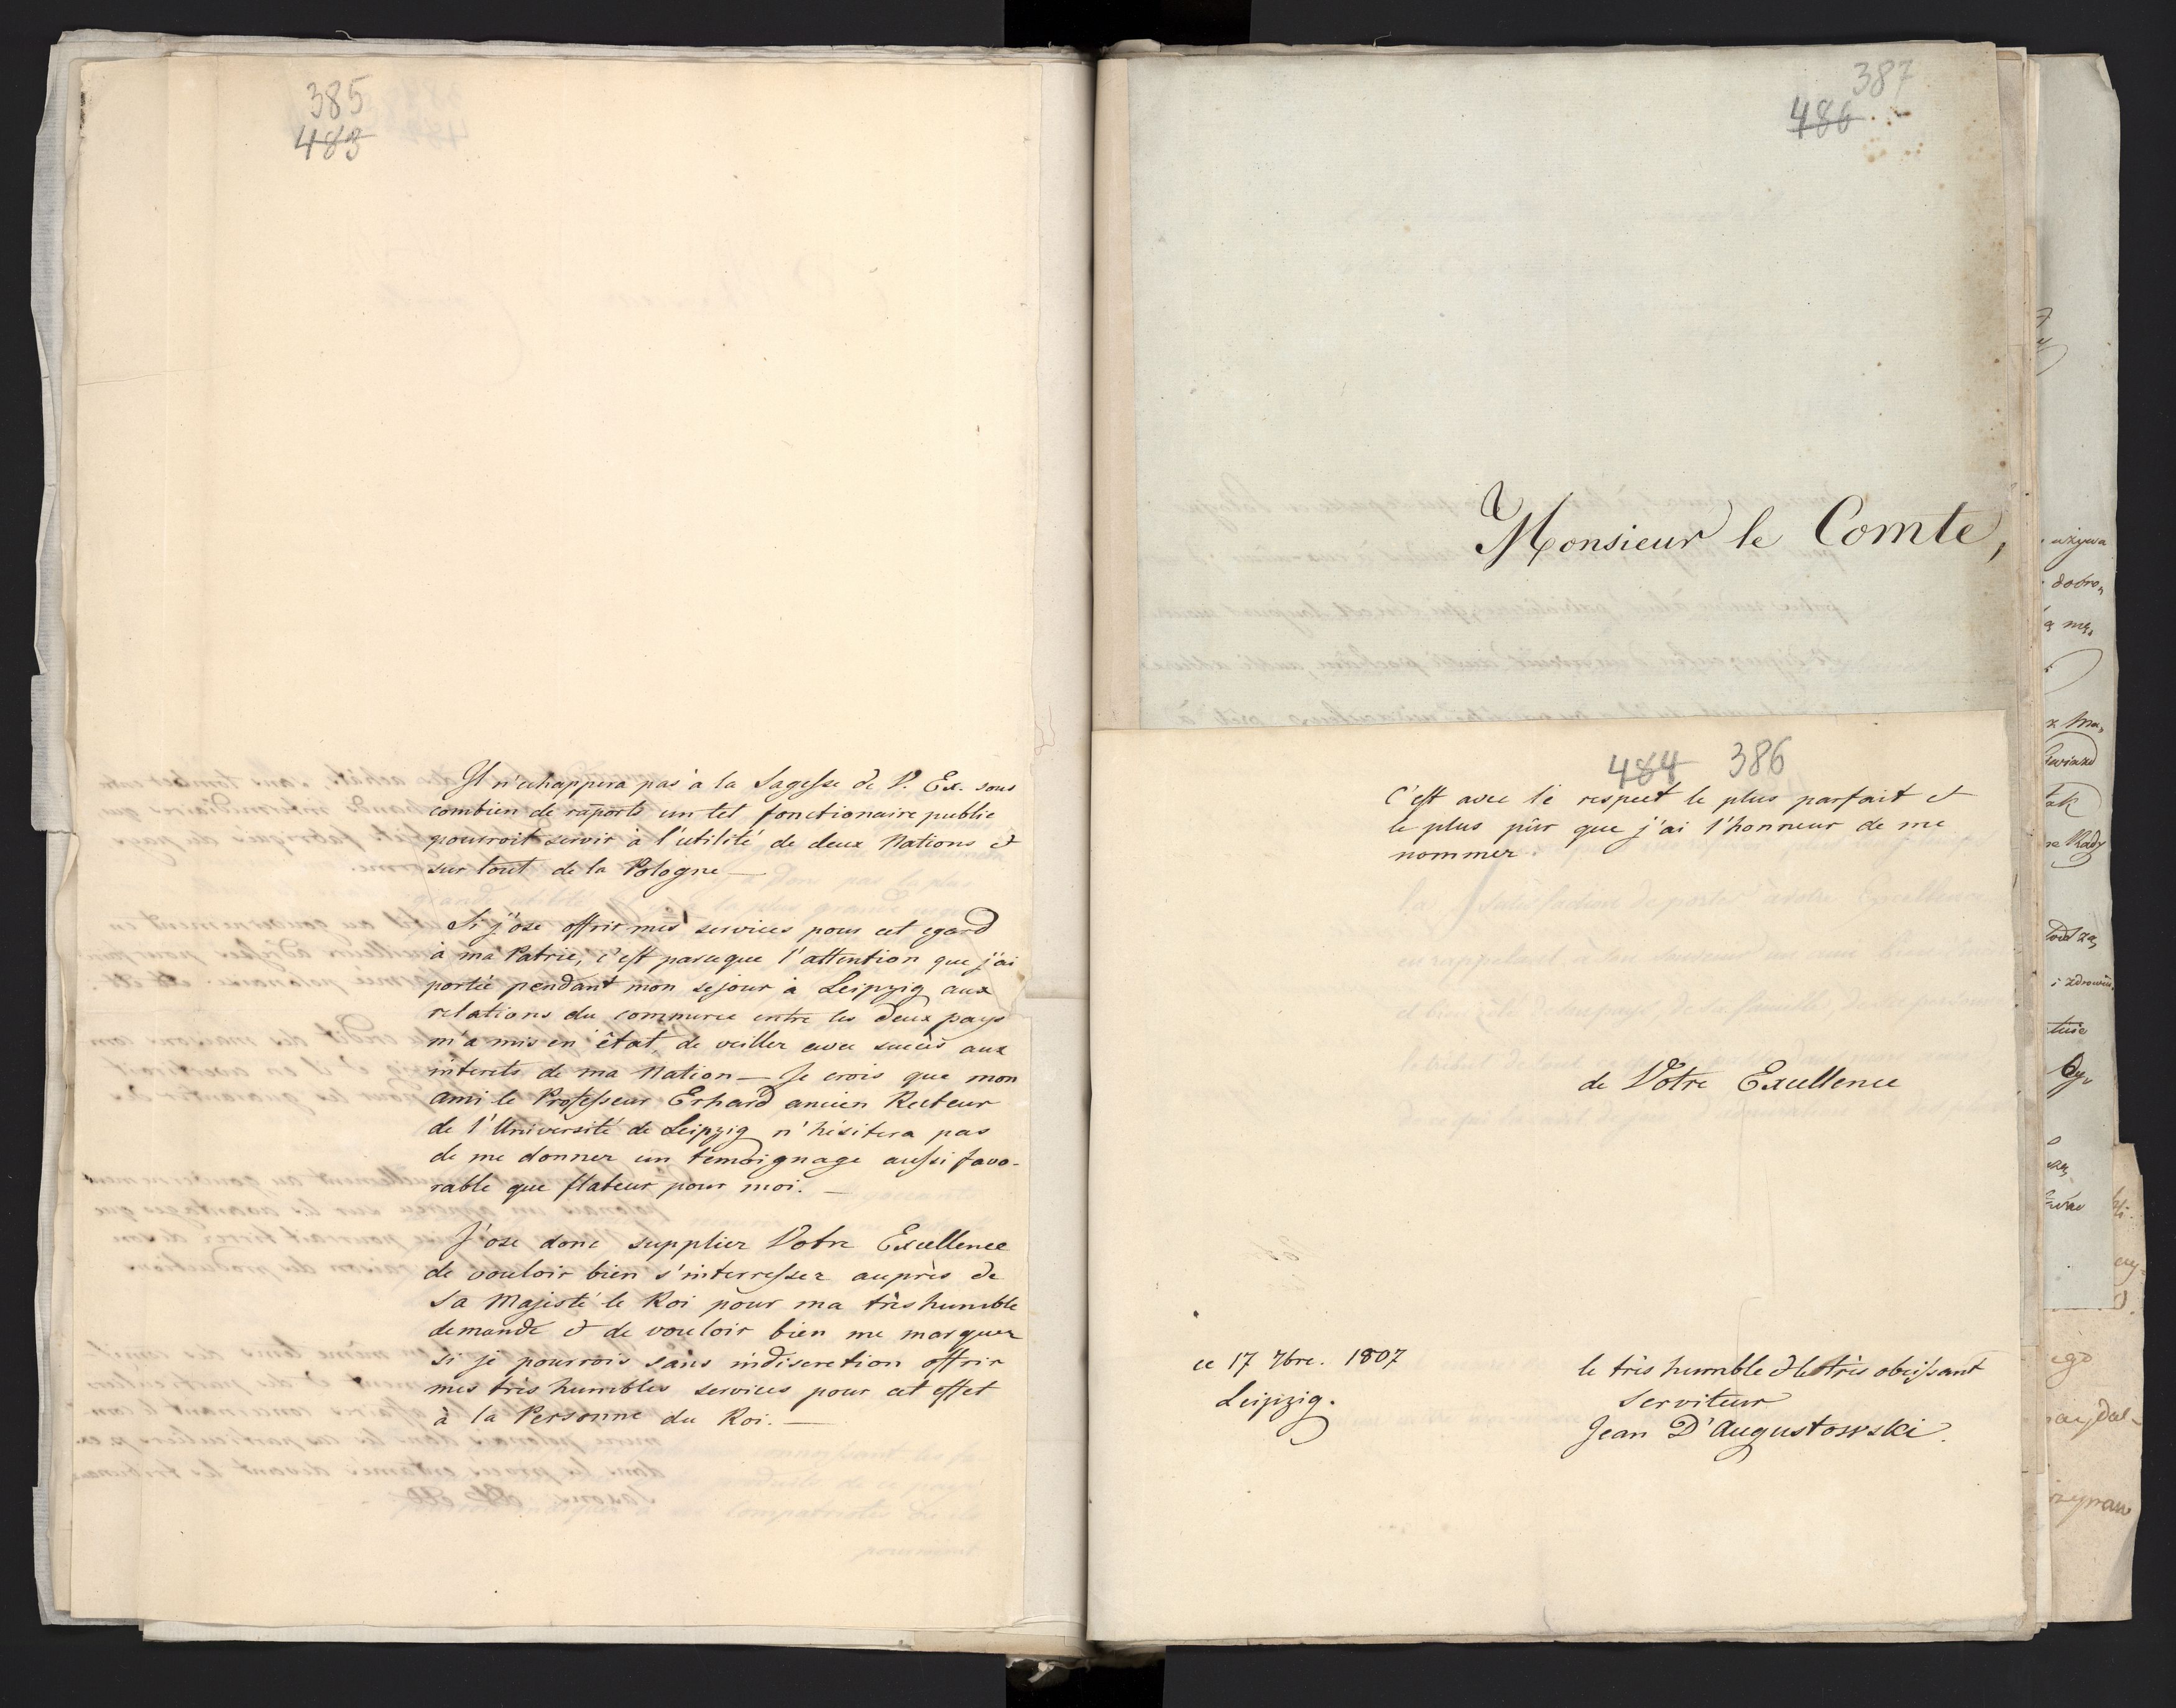 385
483
Il n'echappera pas à la Sagesse de V. Ex. sous
combien de raports un tel fonctionaire public
pourroit servir à l'utilité de deux Nations et
sur tout de la Pologne —
Si j'ose offrir mes services pour cet egard
à ma Patrie, c'est parceque l'attention que j'ai
portée pendant mon sejour à Leipzig aux
relations du commerce entre les deux pays
m'a mis en état de veiller avec succès aux
interets de ma Nation — Je crois que mon
ami le Professeur Erhard ancien Recteur
de l'Université de Leipzig n'hésitera pas
de me donner un temoignage aussi favo-
rable que flateur pour moi. —
J'ose donc supplier Votre Excellence
de vouloir bien s'interresser auprès de
Sa Majesté le Roi pour ma très humble
demande et de vouloir bien me marquer
si je pourrois sans indiscretion offrir
mes très humbles services pour cet effet
à la Personne du Roi. —
387
486
Monsieur le Comte,
484 386
C'est avec le respect le plus parfait et
le plus pûr que j'ai l'honneur de me
nommer
de Votre Excellence
ce 17 7bre. 1807
Leipzig.
le très humble et le très obeissant
serviteur
Jean D'Augustowski.